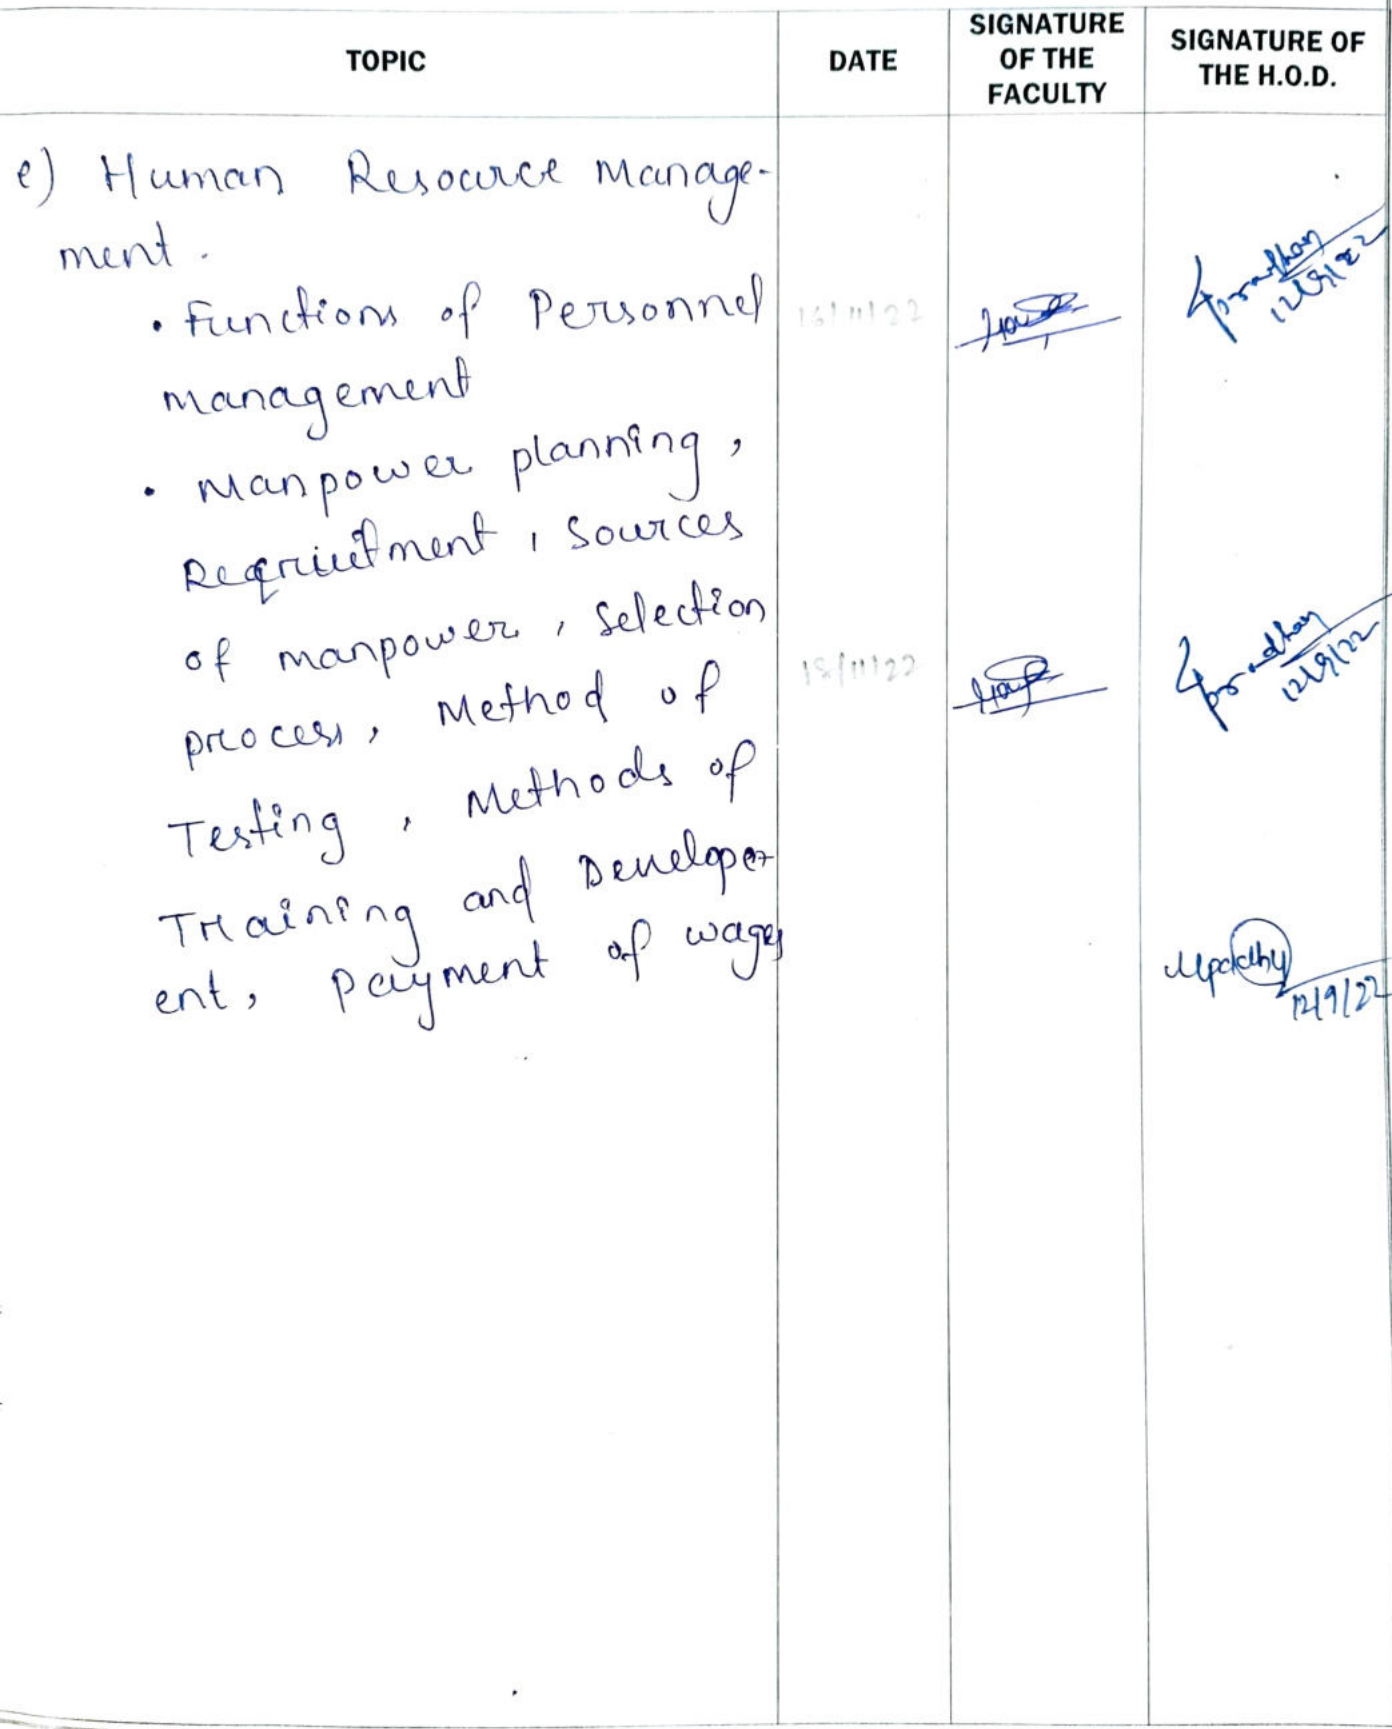 TOPIC
DATE
SIGNATURE
OF THE
FACULTY
SIGNATURE OF
THE H.O.D.
e) Human Resource Manage-
ment.
• Functions of Personnel
management
16/11/22
Pradhan
12/9/22
• Manpower planning,
Recriutment, Sources
of manpower, Selection
process, Method of
18/11/22
Pradhan
12/9/22
Testing, Methods of
Training and Develope
ent, Payment of wages
Upadhy
12/9/22